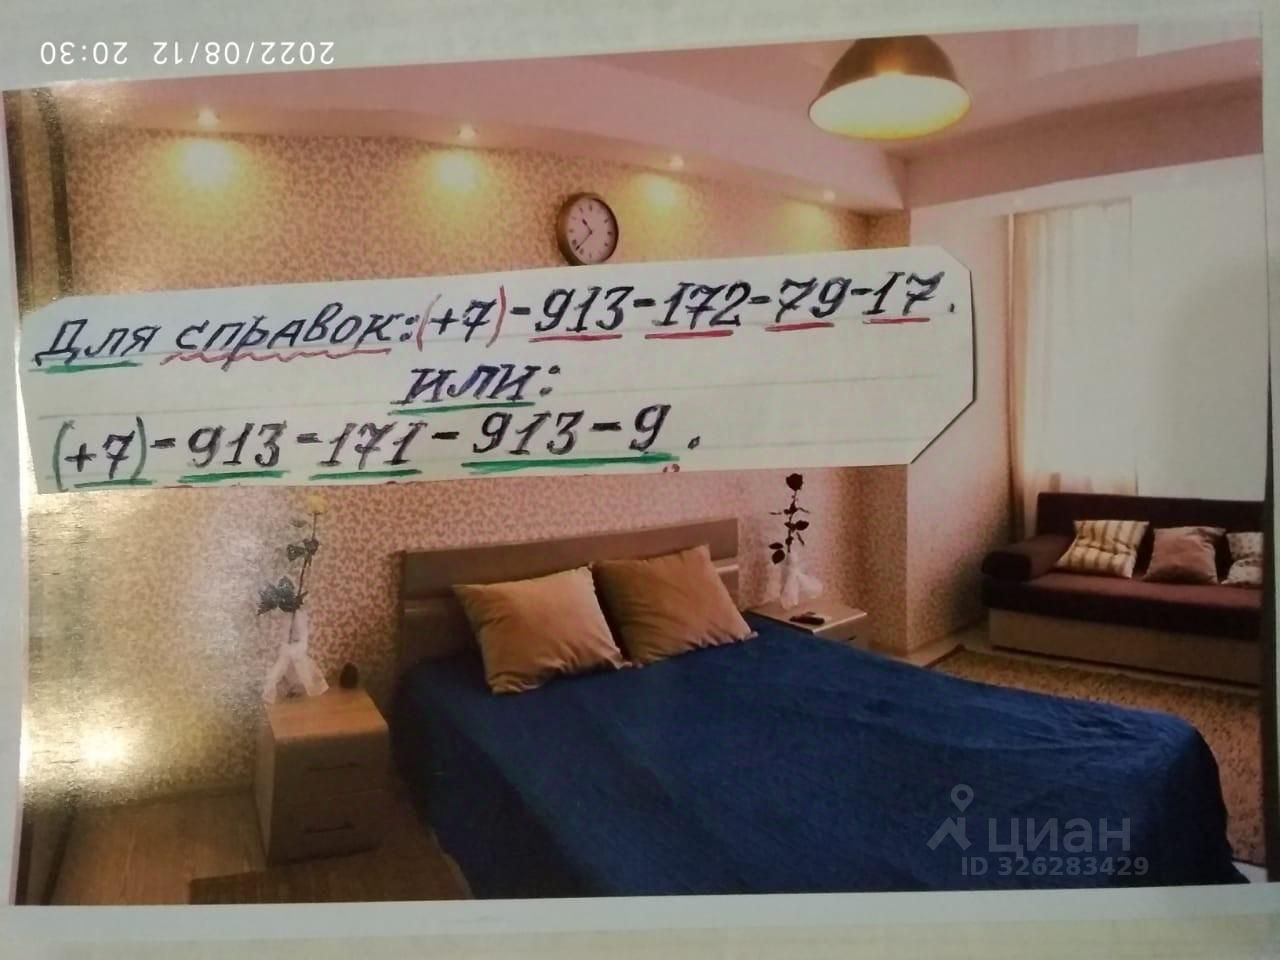 2022/08/12 20:30
Для справок: (+7)-913-172-79-17.
или:
(+7)-913-171-913-9.
циан
ID 326283429